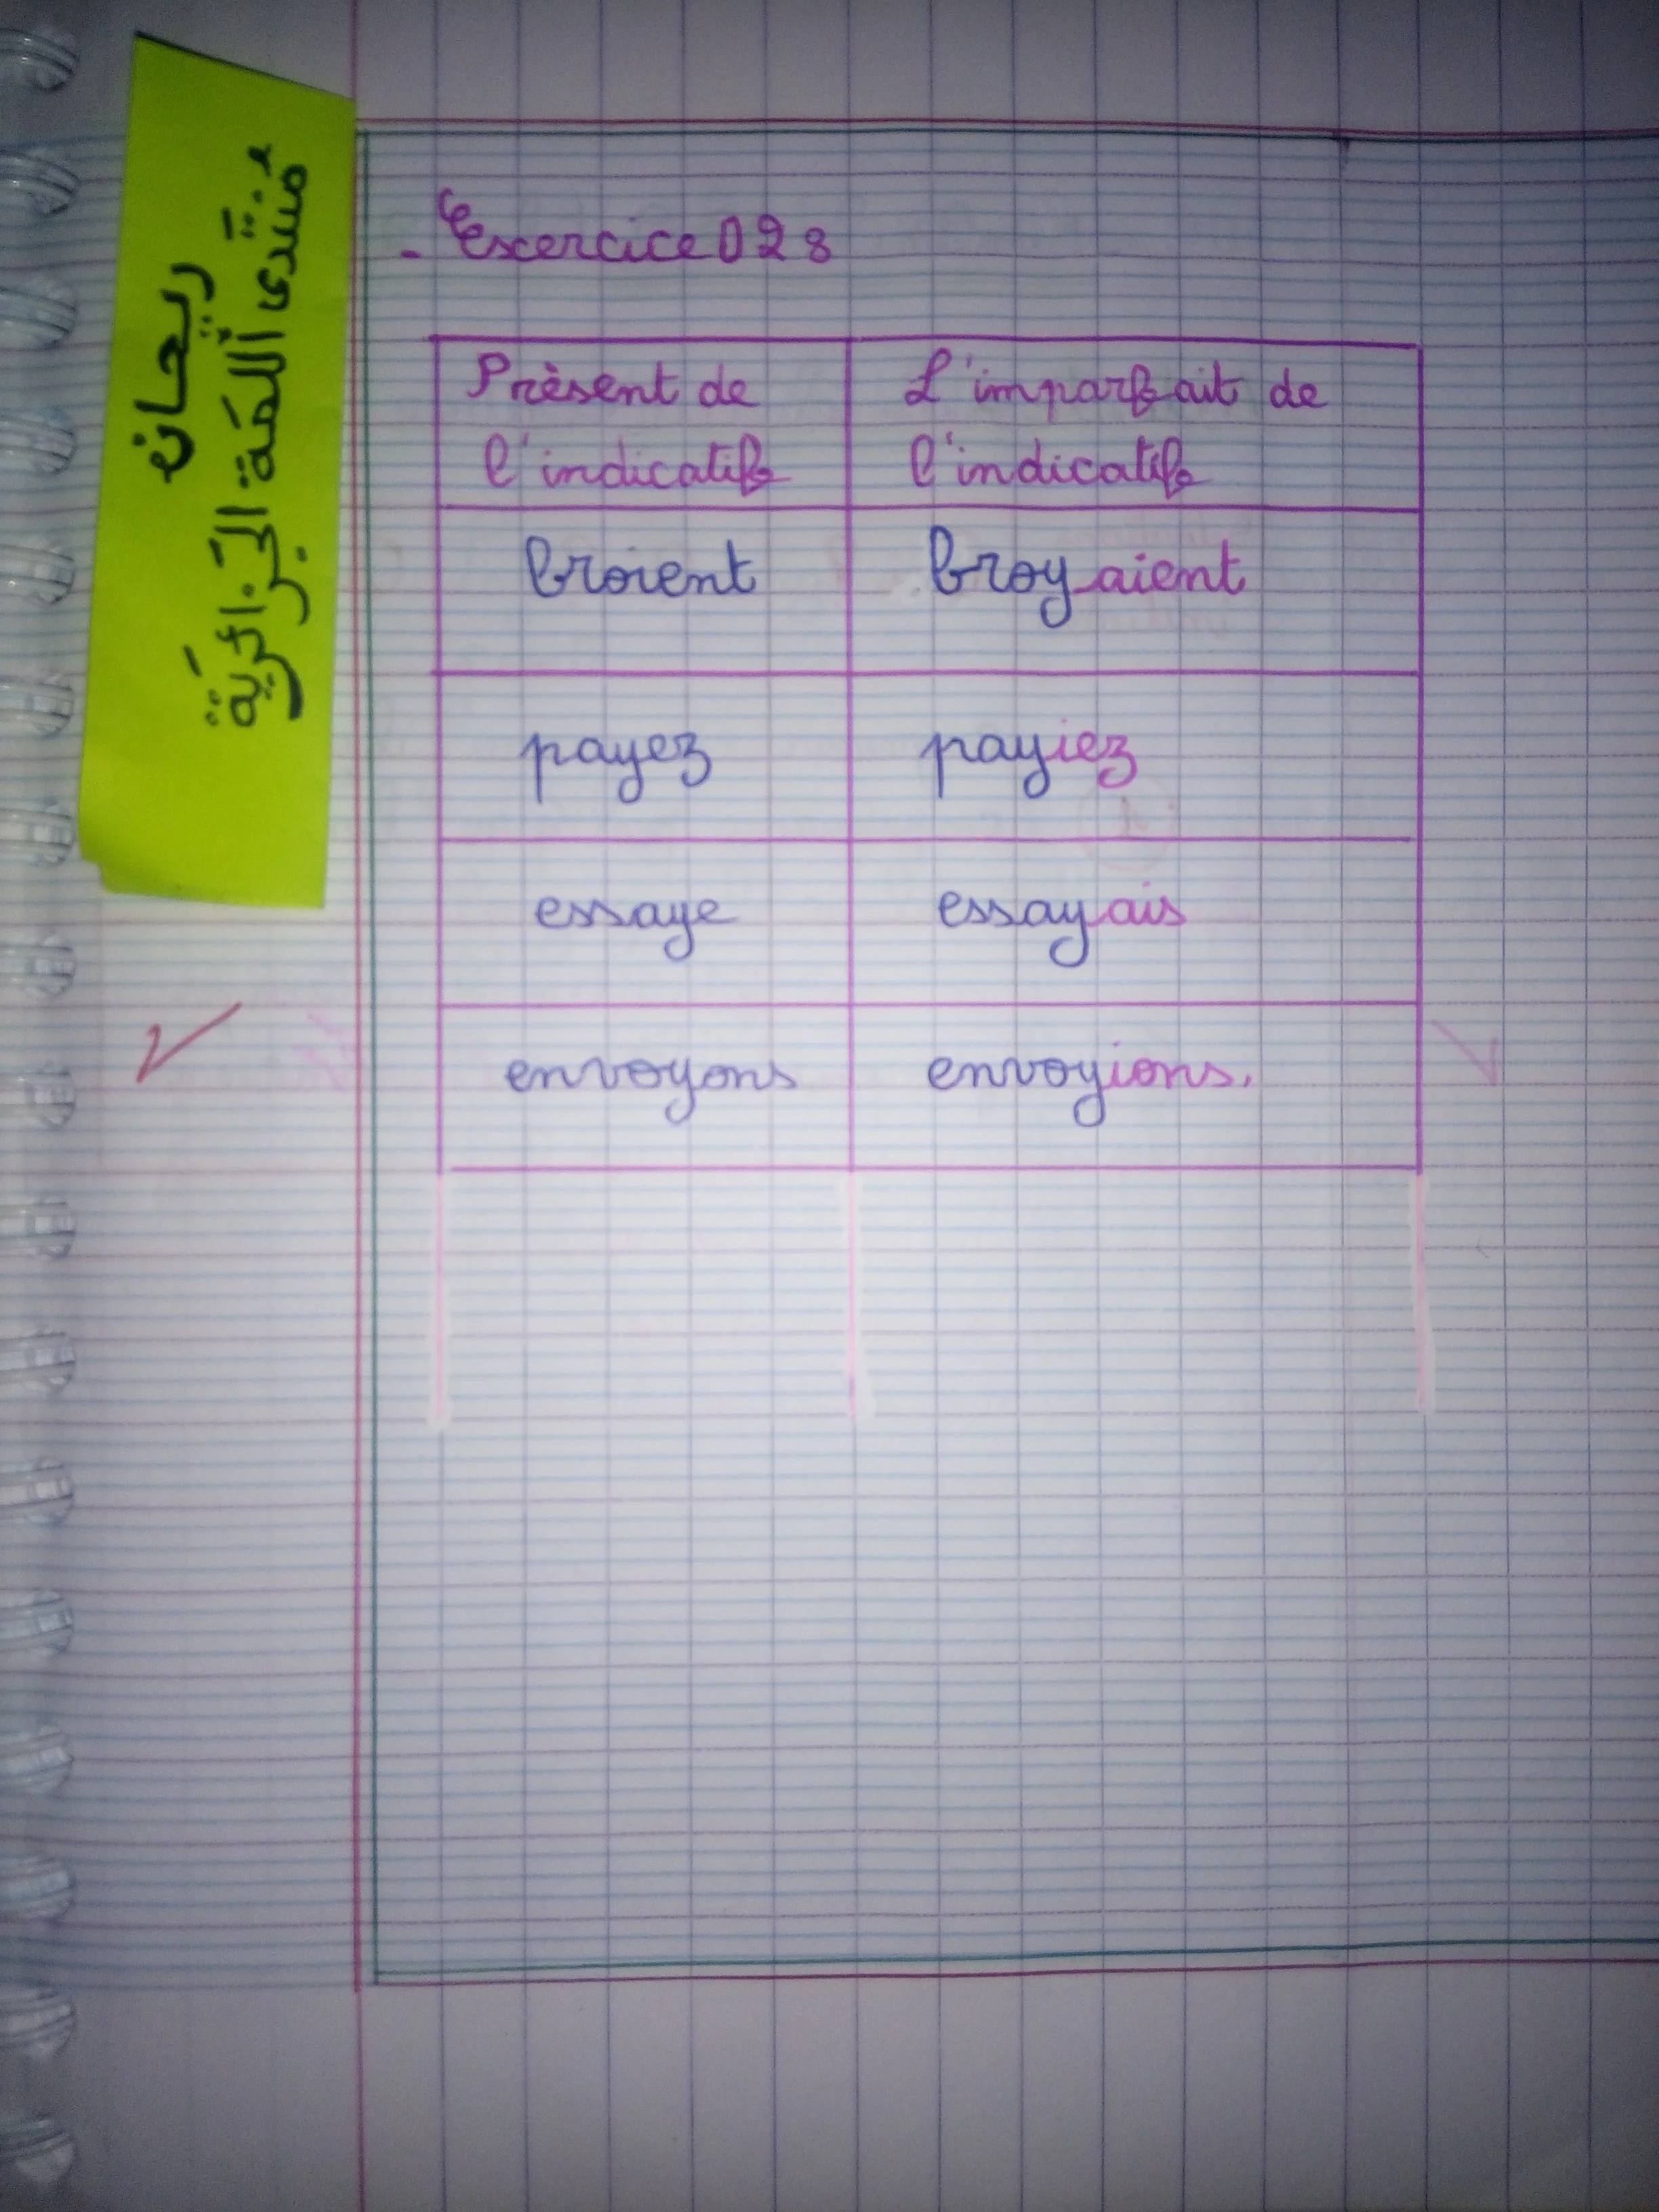 ريحان
منتدى اللمة الجزائرية
- Excercice 02 :
Prèsent de l'indicatif
L'imparfait de l'indicatif
broient
broyaient
payez
payiez
essaye
essayais
envoyons
envoyions.